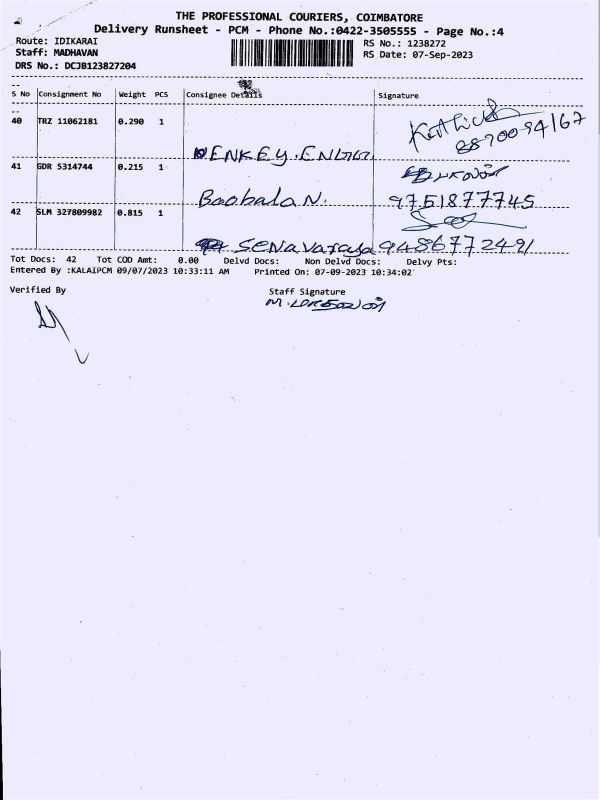 THE PROFESSIONAL COURIERS, COIMBATORE
Delivery Runsheet - PCM - Phone No.:0422-3505555 - Page No.:4
Route: IDIKARAI RS No.: 1238272
Staff: MADHAVAN RS Date: 07-Sep-2023
DRS No.: DCJB123827204
S No Consignment No Weight PCS Consignee Details Signature
40 TRZ 11062181 0.290 1
8870094167
ENKEY.ENGG.
41 GDR 5314744 0.215 1
Baobala N. 9751877745
42 SLM 327809982 0.815 1
SENAVARAYA 9486772491
Tot Docs: 42 Tot COD Amt: 0.00 Delvd Docs: Non Delvd Docs: Delvy Pts:
Entered By :KALAIPCM 09/07/2023 10:33:11 AM Printed On: 07-09-2023 10:34:02
Verified By Staff Signature